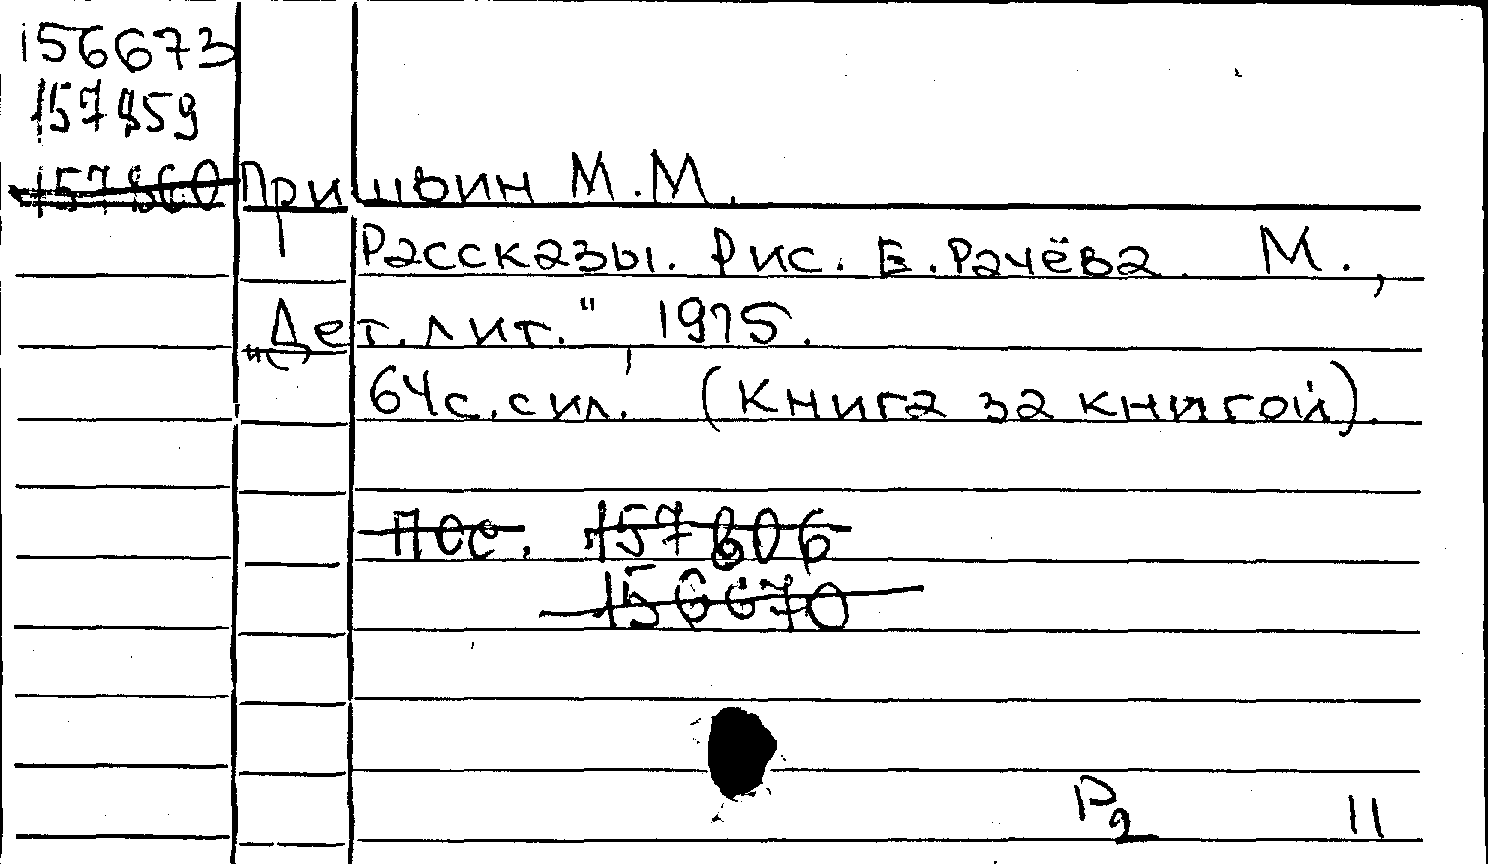 156673
157859
157860
Пришвин М.М.
Рассказы. Рис. Е. Рачёва. М.,
„Дет. лит.", 1975.
64с. с ил. (Книга за книгой).
157806
156670
Р2 11